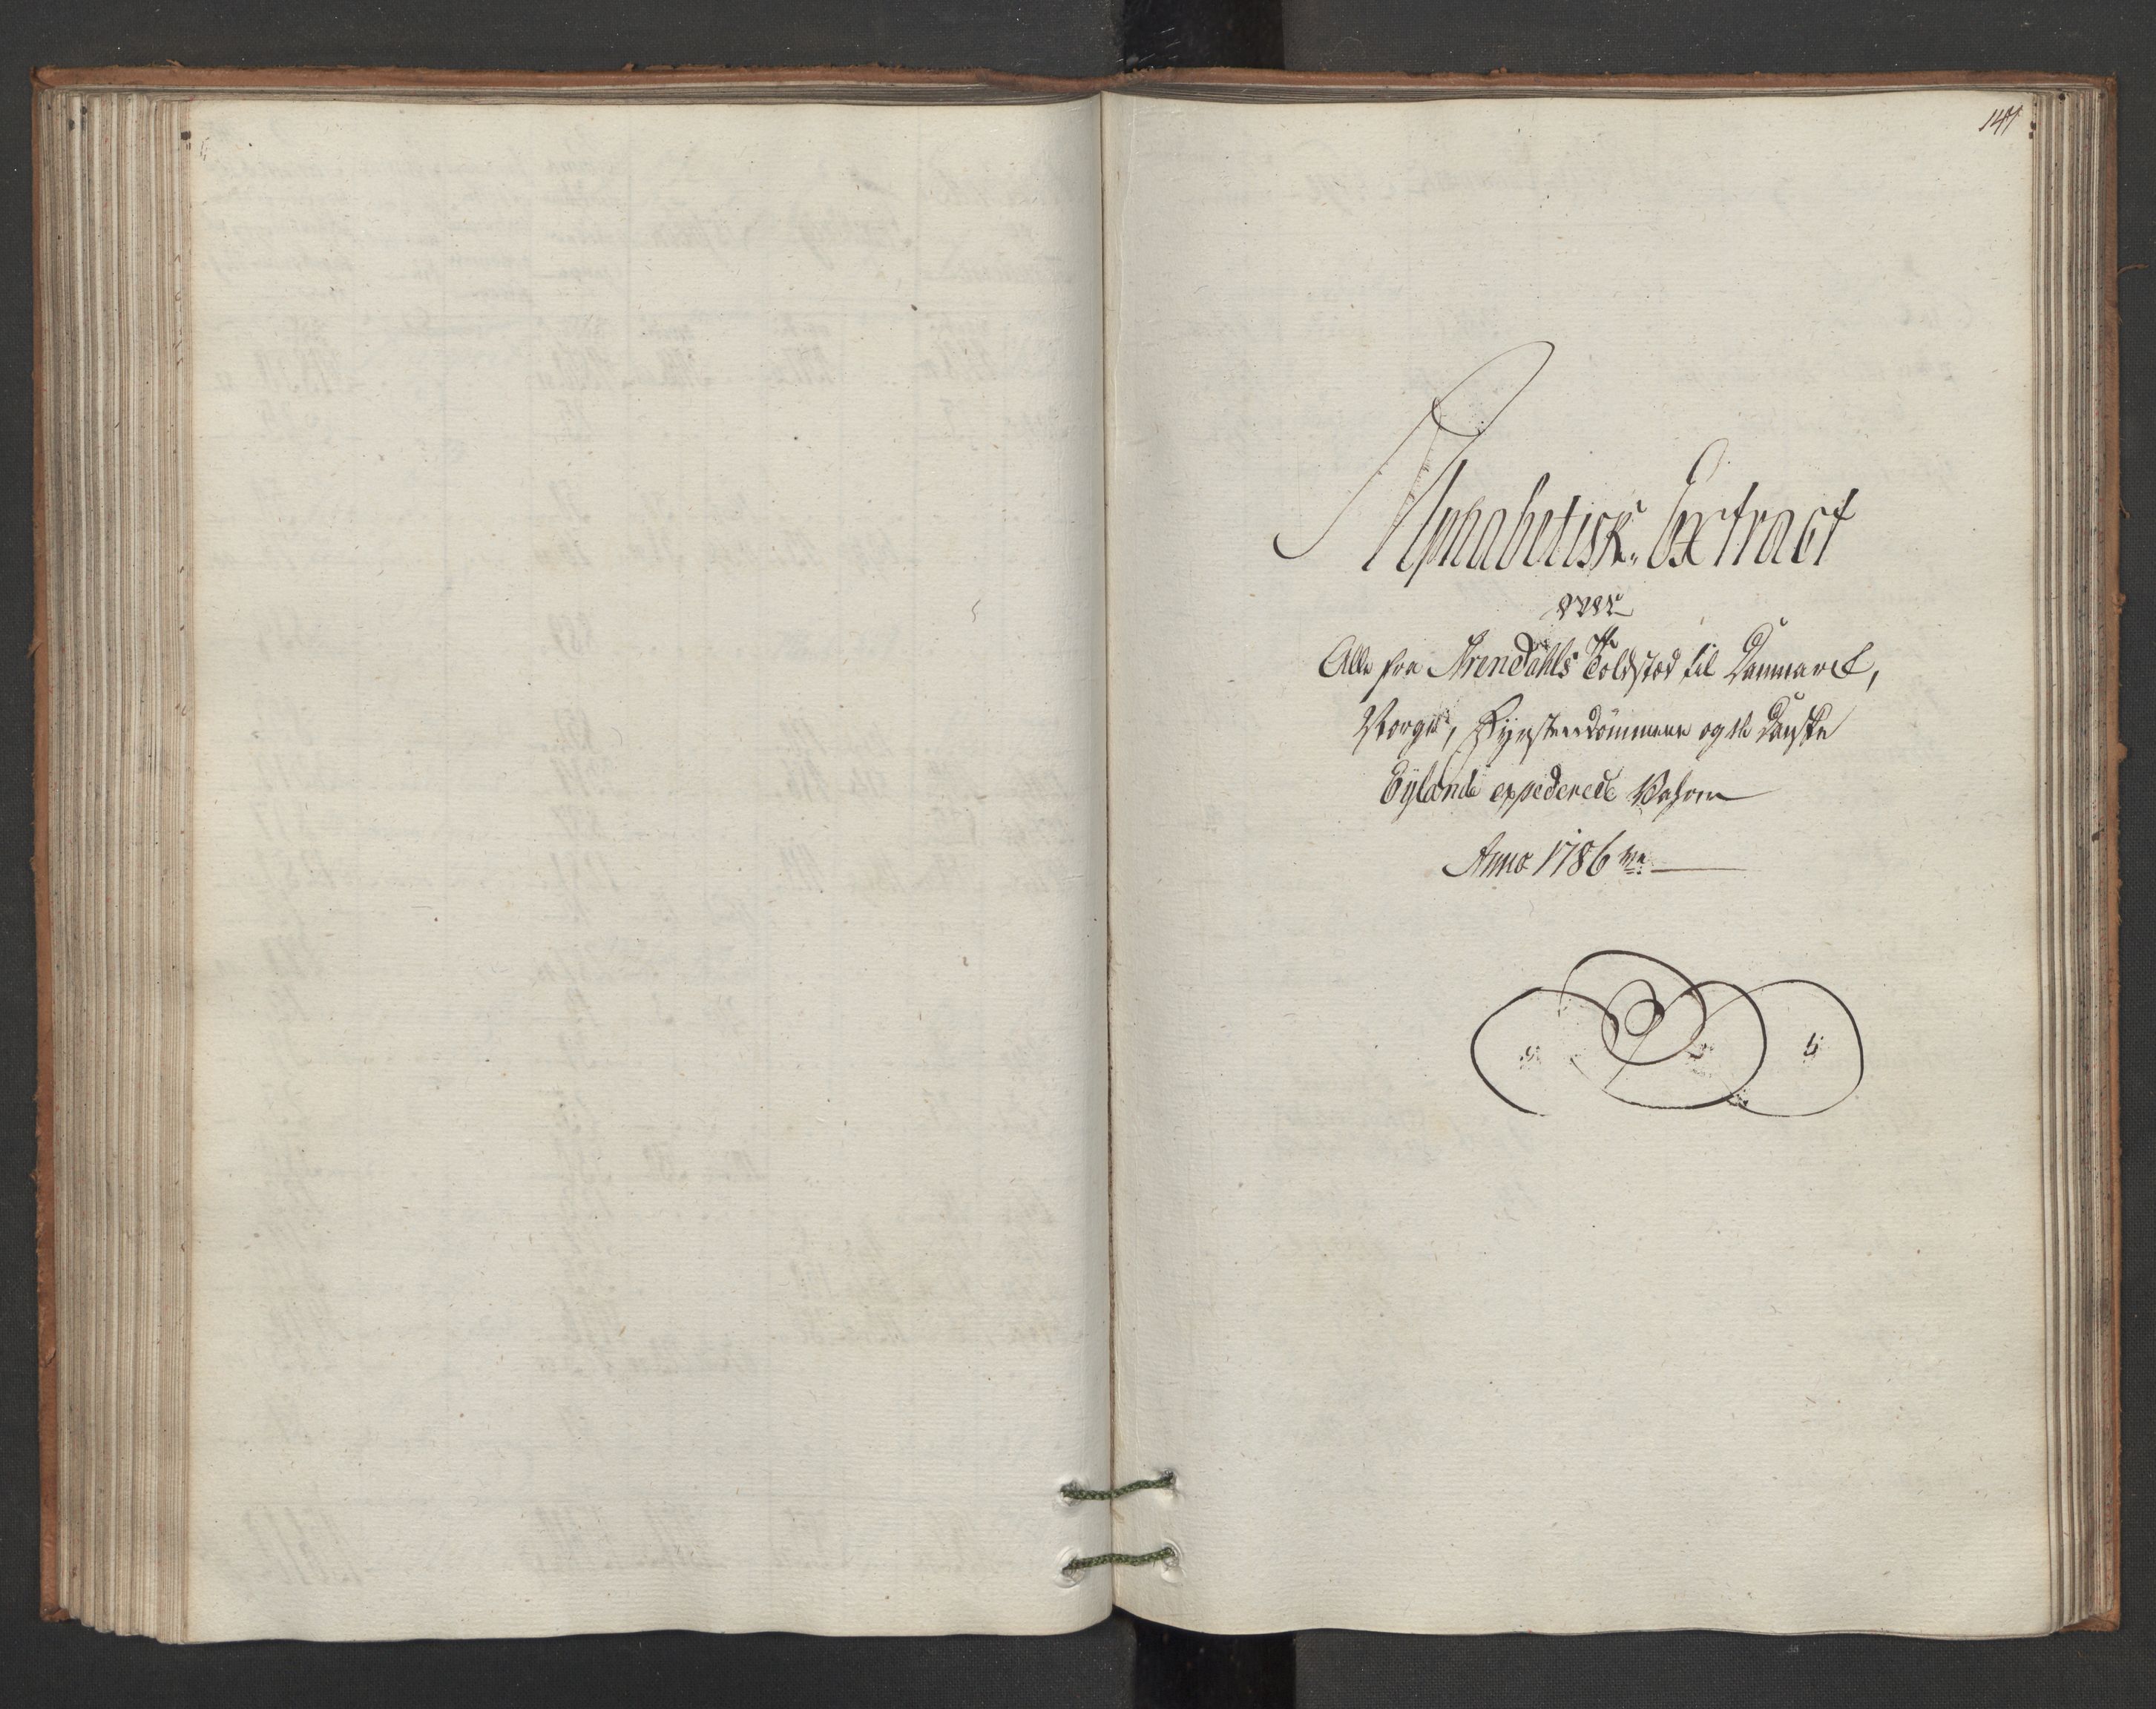 147
Alphabetisk Extract
over
Alle fra Arendahls Toldsted til Danmarck,
Norge, Fyrstendömmene og de Danske
Eylande expederede Vahre
Anno 1786